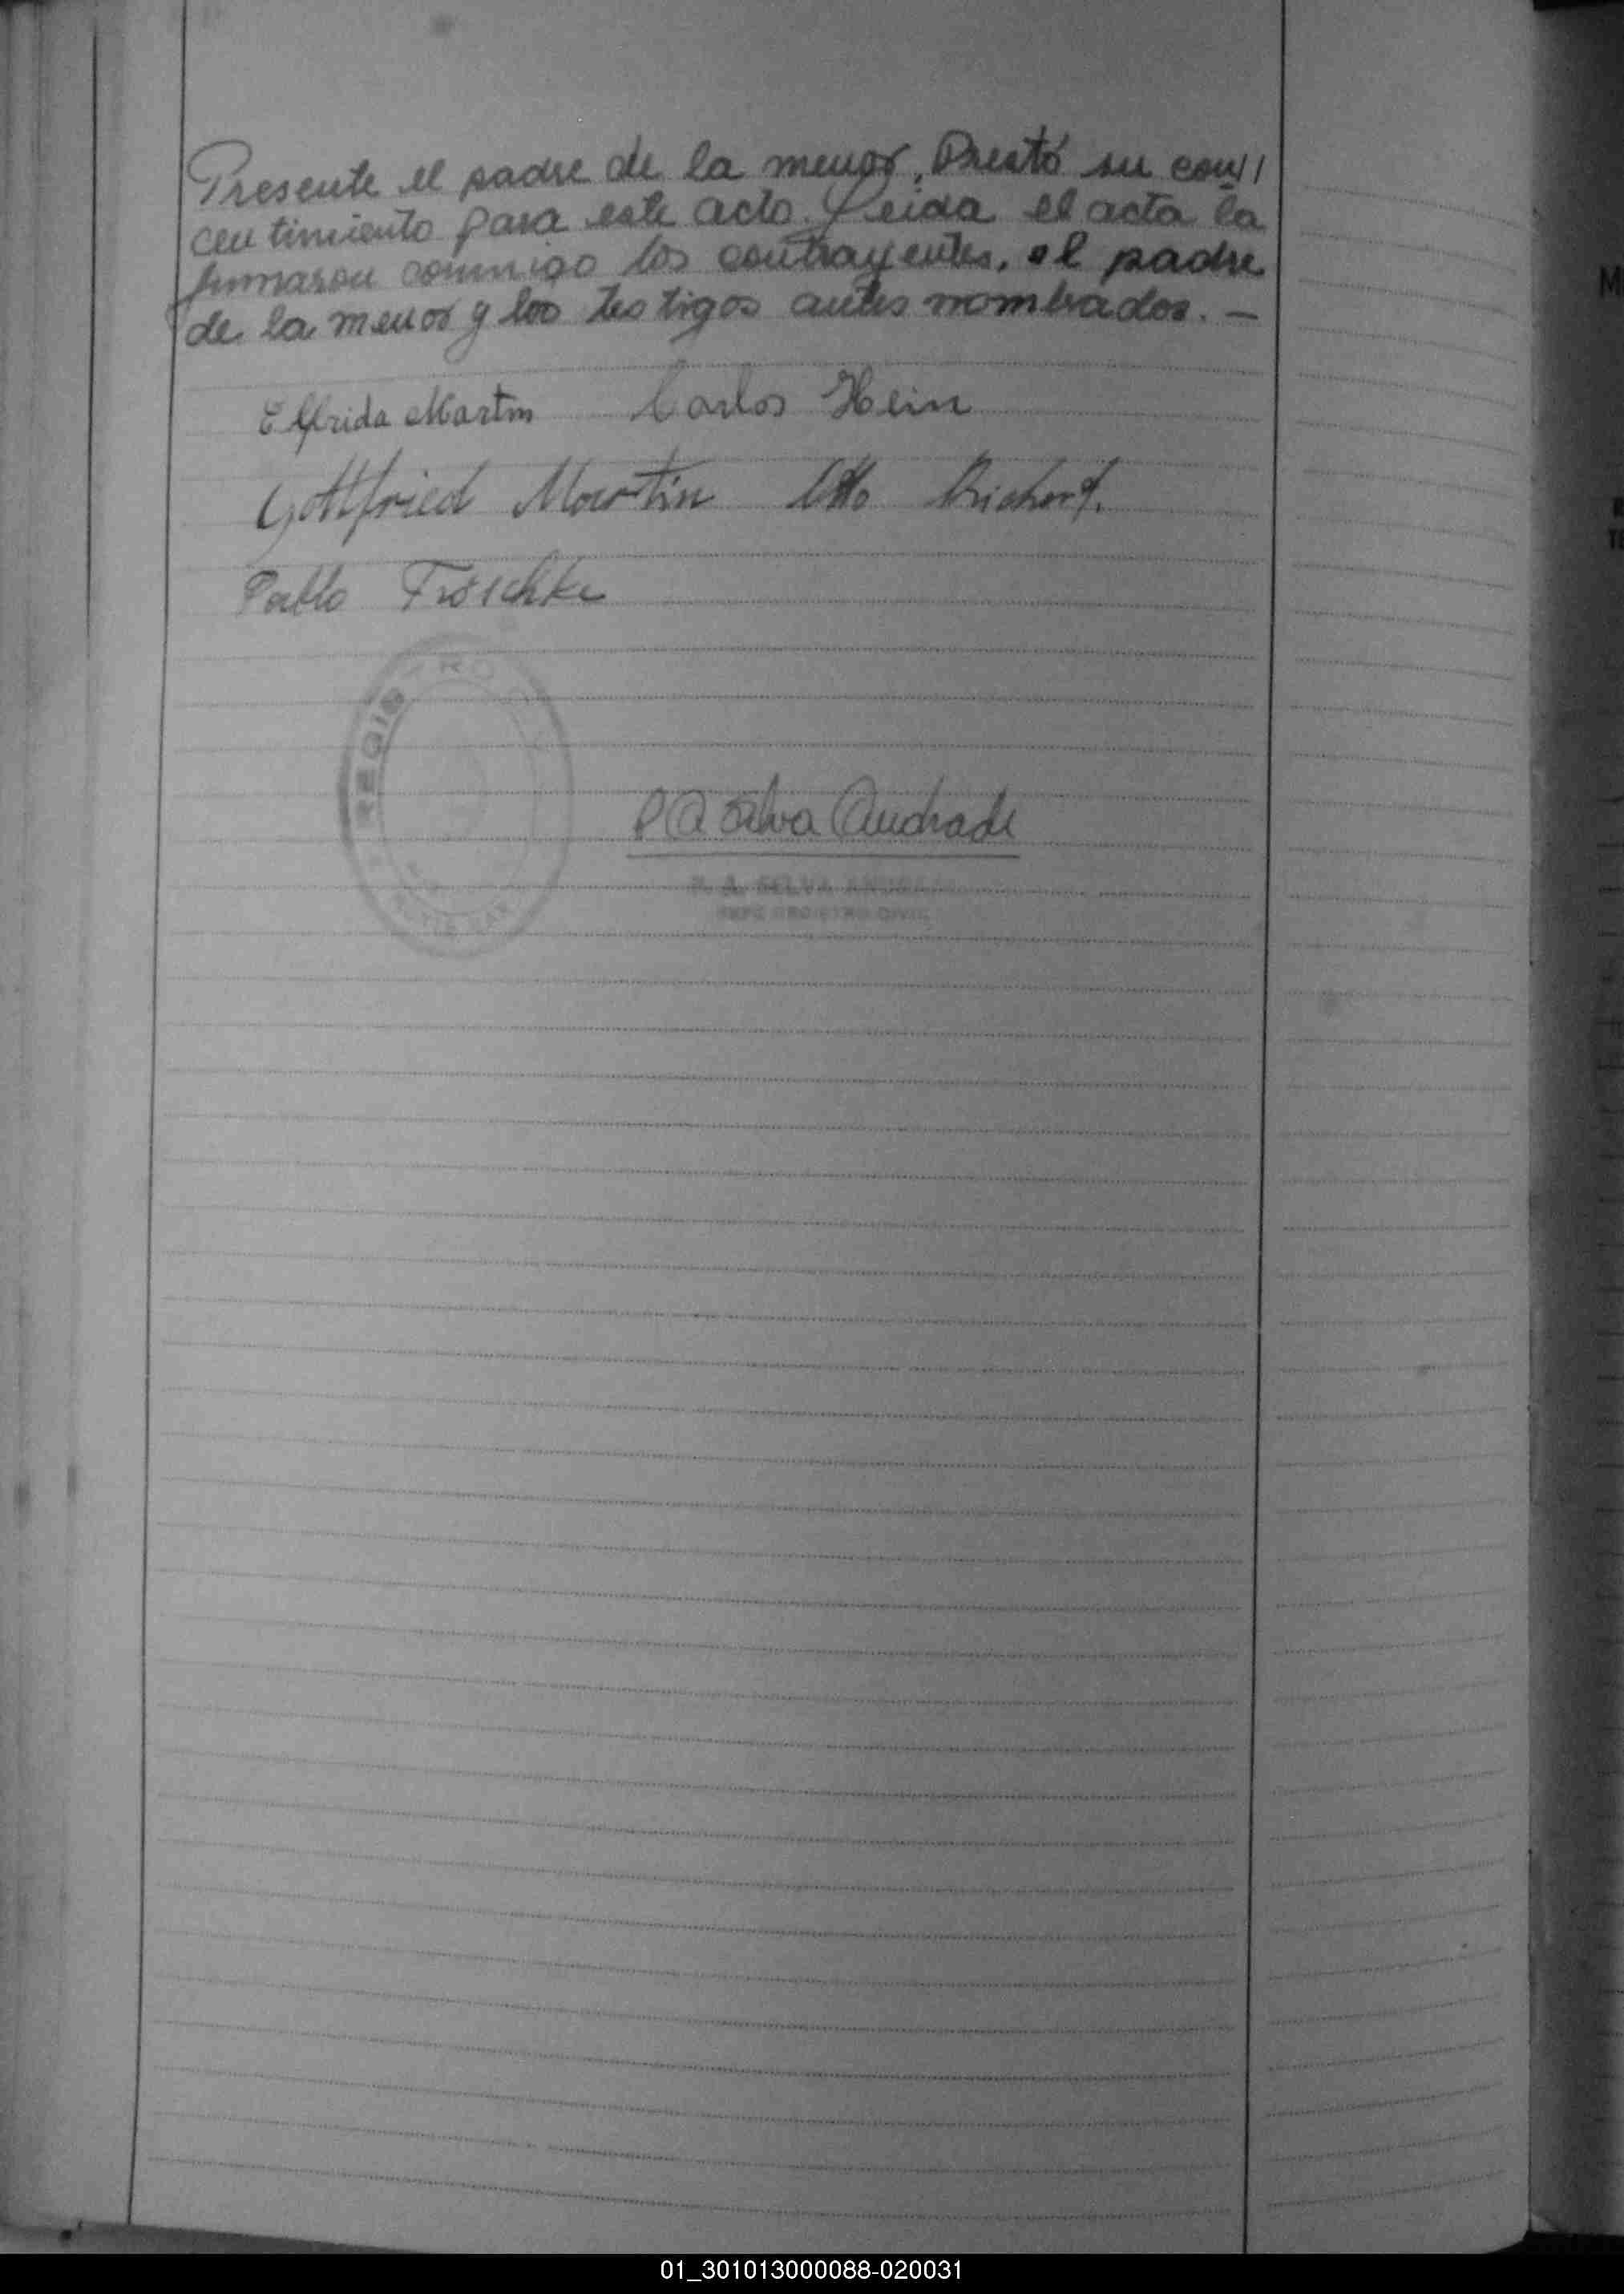 Presente el padre de la menor, Prestó su con//
centimiento para este acto. Leida el acta la
firmaron conmigo los contrayentes, el padre
de la menor y los testigos antes nombrados. —
Elfrida Martin Carlos Hein
Gottfried Martin Otto
Pablo Fröschke
REGIS RO
P A Silva Andrade
P. A. SILVA ANDRADE
JEFE REGISTRO CIVIL
01_301013000088-020031